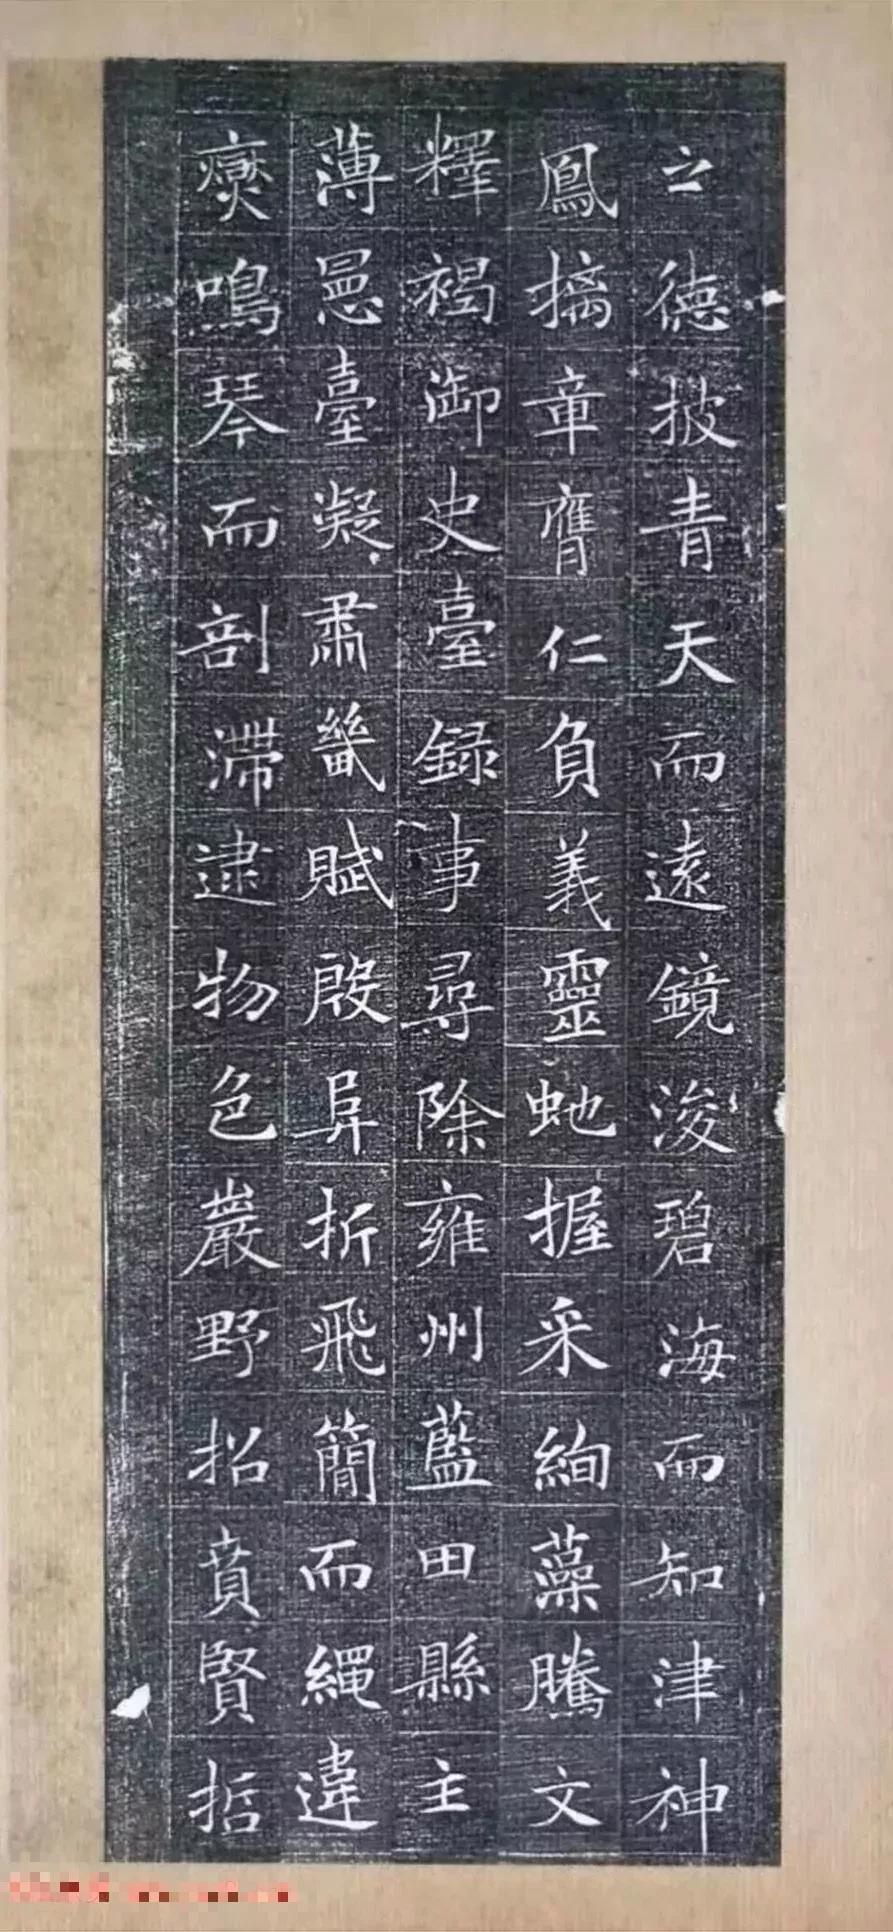 之德披青天而遠鏡浚碧海而知津神
鳳摛章膺仁負義靈虵握采絢藻騰文
釋褐御史臺録事尋除雍州藍田縣主
薄臺凝肅畿賦殷阜折飛簡而繩違
鳴琴而剖滯逮物色巖野招賁賢哲